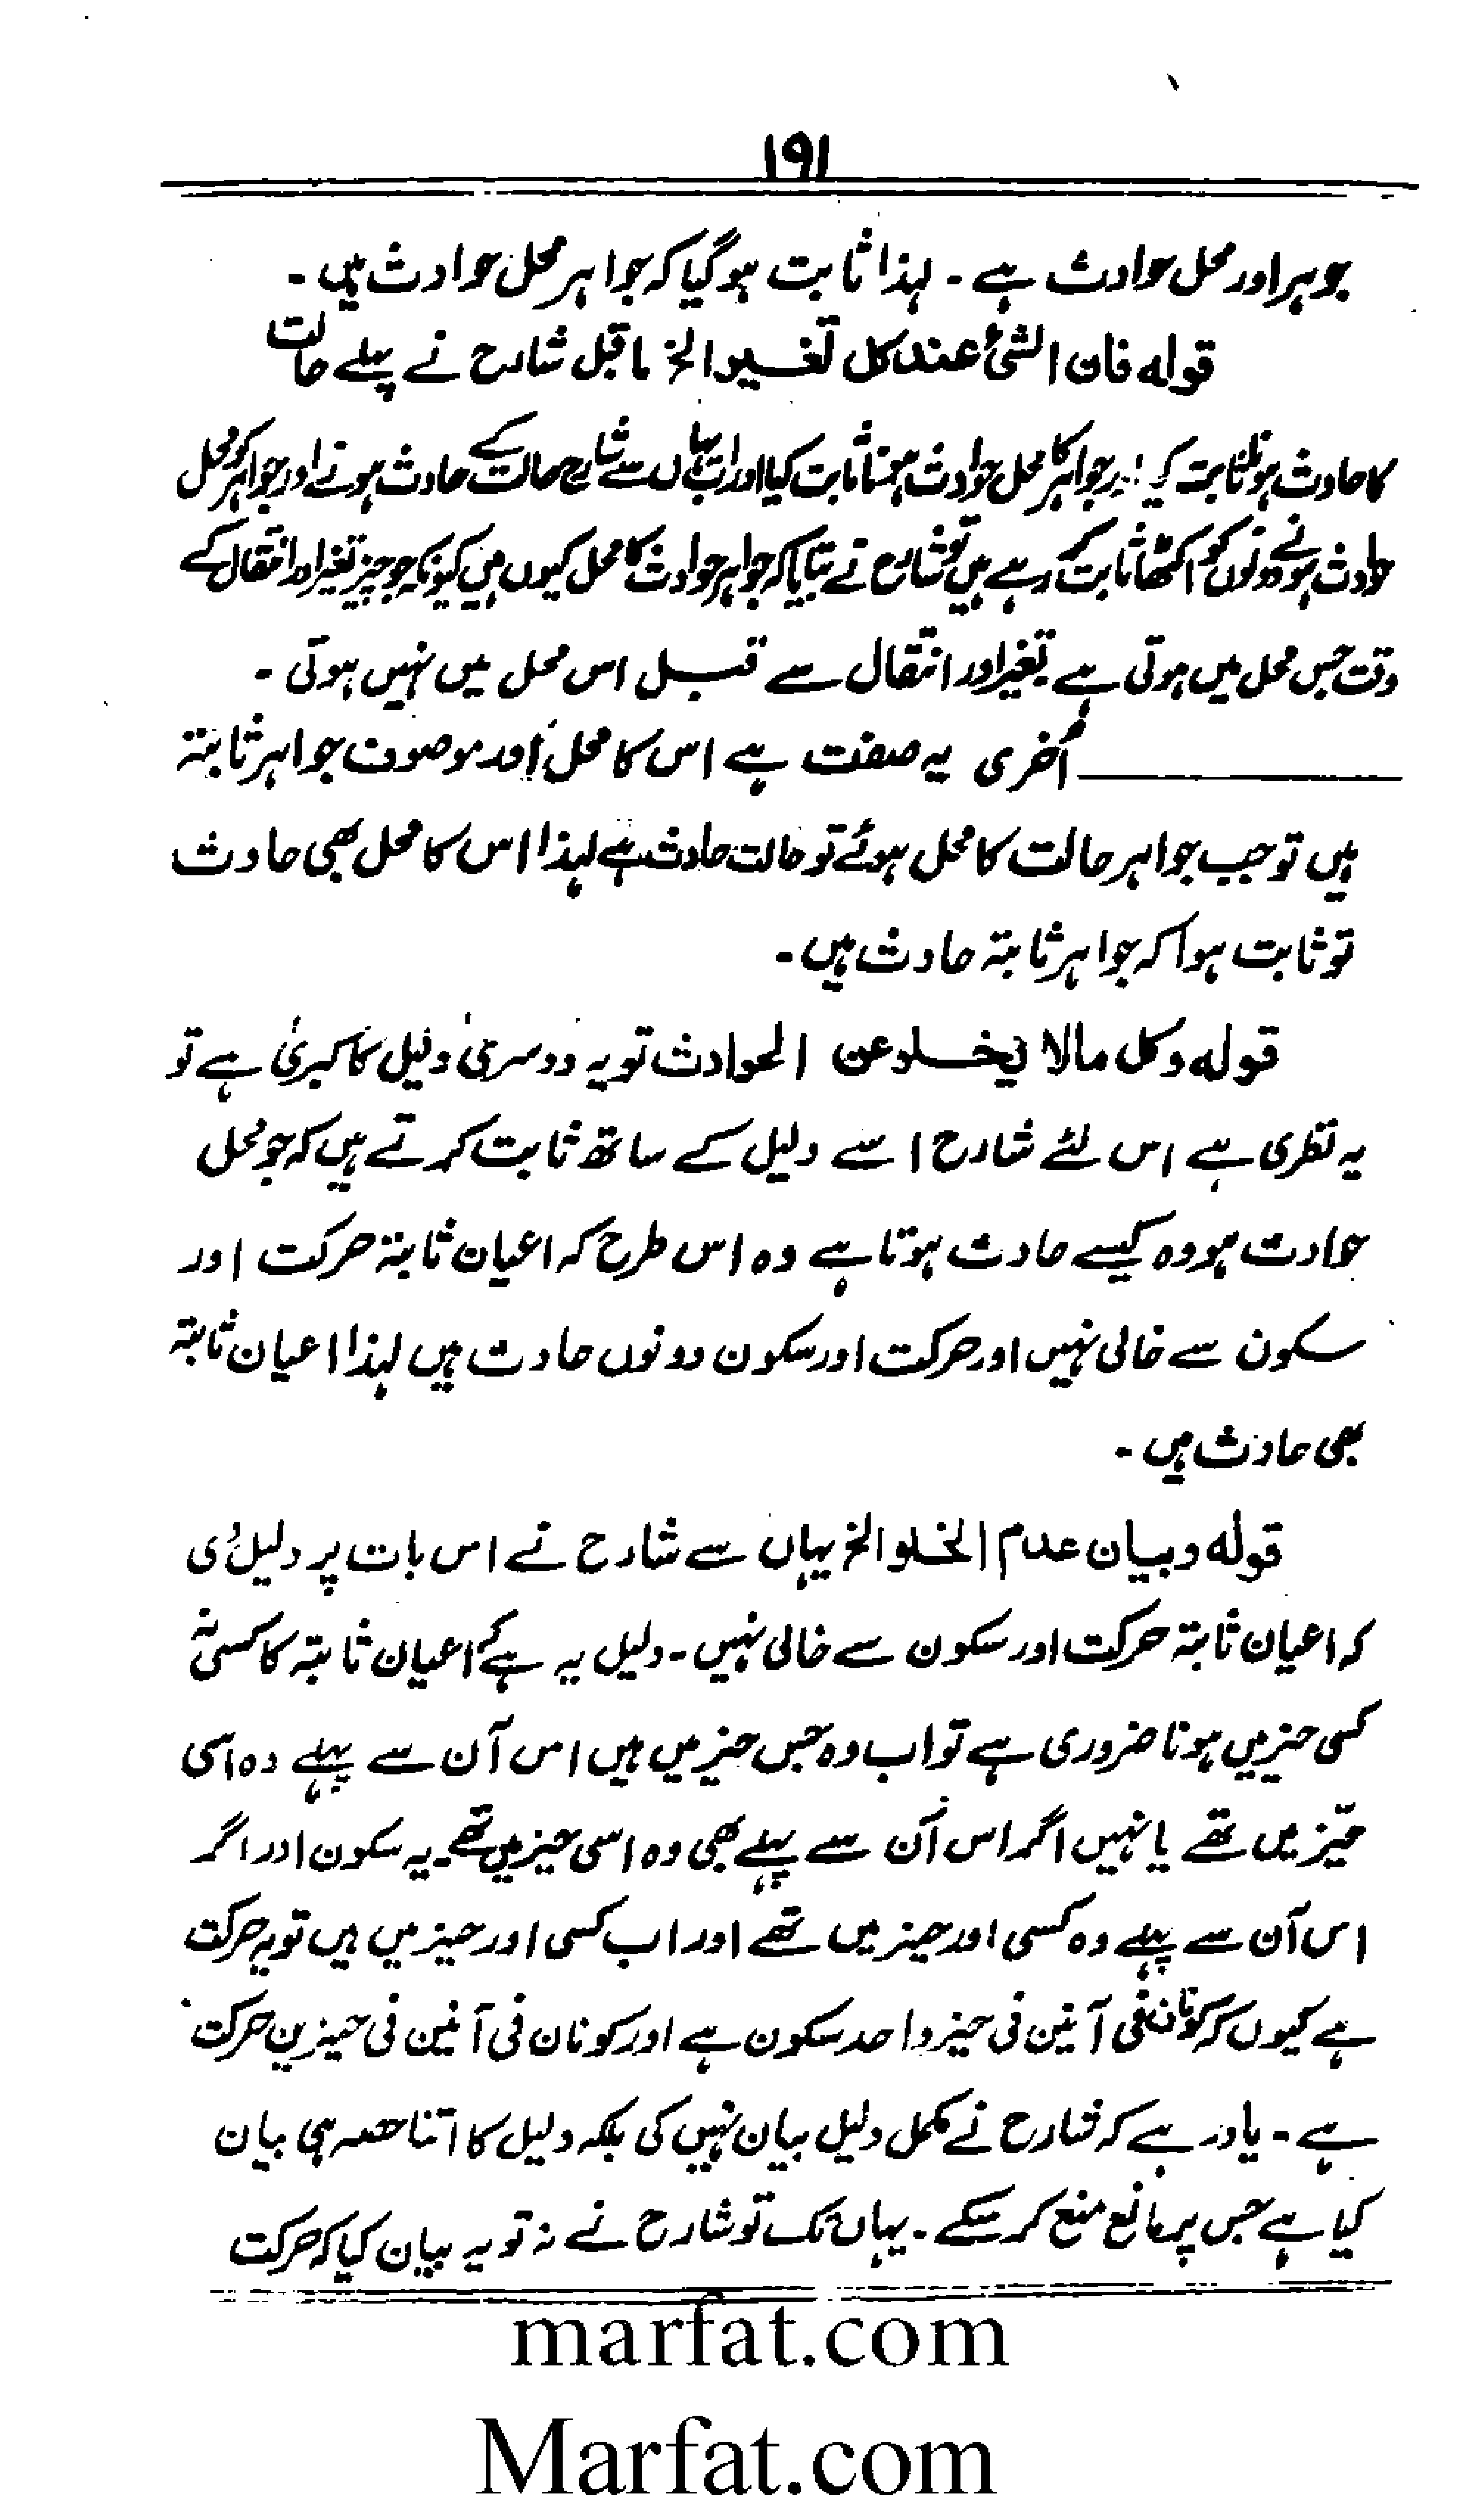 ۱۹۱
جوہر اور محل حوادث ہے ۔ لہذا ثابت ہو گیا کہ جواہر محل حوادث ہیں ۔
قولہ فان الشئ عند کل تغییر الخ ماقبل شارح نے پہلے حالت
کا حادث ہونا ثابت کیا اور جواہر کا محل حوادث ہونا ثابت کیا اور اب یہاں سے شارح حالت کے حادث ہونے اور جواہر کو محل
حوادث ہونے دونوں کو اکٹھا ثابت کر رہے ہیں تو شارح نے بتایا کہ جواہر حوادث کا محل کیوں ہیں کیونکہ جو چیز تغیر اور انتقال کے
وقت جس محل میں ہوتی ہے تغیر اور انتقال سے قبل اس محل میں نہیں ہوتی ۔
اُخری یہ صفت ہے اس کا محل اور موصوف جواہر ثابتۃ
ہیں تو جب جواہر حالت کا محل ہوئے تو حالت حادث ہے لہذا اس کا محل بھی حادث
تو ثابت ہوا کہ جواہر ثابتۃ حادث ہیں ۔
قولہ وکل مالا یخلو عن الحوادث تو یہ دوسری دلیل کا کبریٰ ہے تو
یہ نظری ہے اس لئے شارح اسے دلیل کے ساتھ ثابت کرتے ہیں کہ جو محل
حوادث ہو وہ کیسے حادث ہوتا ہے وہ اس طرح کہ اعیان ثابتۃ حرکت اور
سکون سے خالی نہیں اور حرکت اور سکون دونوں حادث ہیں لہذا اعیان ثابتۃ
بھی حادث ہیں ۔
قولہ وبیان عدم الخلو الخ یہاں سے شارح نے اس بات پر دلیل دی
کہ اعیان ثابتۃ حرکت اور سکون سے خالی نہیں ۔ دلیل یہ ہے کہ اعیان ثابتۃ کا کسی نہ
کسی حیز میں ہونا ضروری ہے تو اب وہ جس حیز میں ہیں اس آن سے پہلے وہ اسی
حیّز میں تھے یا نہیں اگر اس آن سے پہلے بھی وہ اسی حیز میں تھے یہ سکون اور اگر
اس آن سے پہلے وہ کسی اور حیز میں تھے اور اب کسی اور حیز میں ہیں تو یہ حرکت
ہے کیوں کہ کونان فی آنین فی حیز واحد سکون ہے اور کونان فی آنین فی حیزین حرکت
ہے ۔ یاد رہے کہ شارح نے مکمل دلیل بیان نہیں کی بلکہ دلیل کا اتنا حصہ ہی بیان
کیا ہے جس پر مانع منع کر سکے ۔ یہاں تک تو شارح نے نہ تو یہ بیان کیا کہ حرکت
marfat.com
Marfat.com